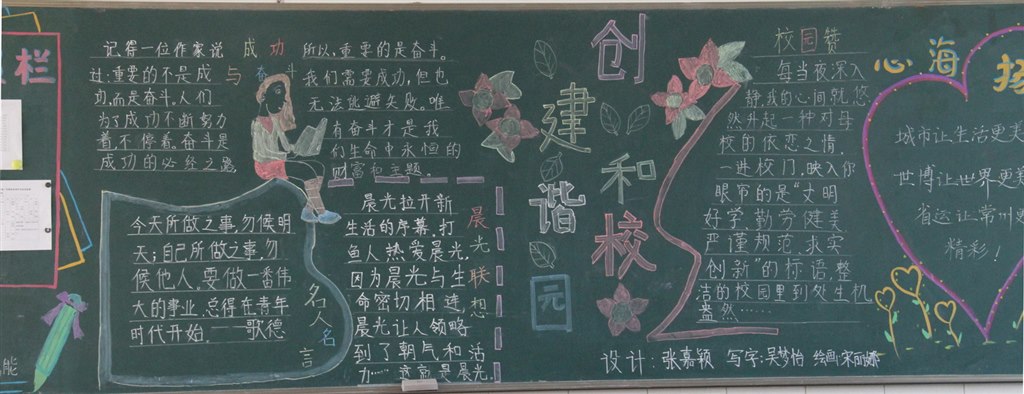 栏
记得一位作家说
过:重要的不是成
功,而是奋斗。人们
为了成功不断努力
着,不停着。奋斗是
成功的必经之路,
成功
与奋斗
所以,重要的是奋斗。
我们需要成功,但也
无法逃避失败。唯
有奋斗才是我
们生命中永恒的
财富和主题。
今天所做之事,勿候明
天;自己所做之事,勿
候他人,要做一番伟
大的事业,总得在青年
时代开始.——歌德
名人名言
晨光拉开新
生活的序幕,打
鱼人热爱晨光,
因为晨光与生
命密切相连,
晨光让人领略
到了朝气和活
力……这就是晨光。
晨光联想
创建和谐校园
校园赞
每当夜深入
静,我的心间就悠
然升起一种对母
校的依恋之情,
一进校门,映入你
眼帘的是“文明
好学 勤劳 健美
严谨 规范 求实
创新”的标语,整
洁的校园里到处生机
盎然……
设计:张嘉颖 写字:吴梦怡 绘画:宋丽
心海扬
城市让生活更美
世博让世界更
省运让常州更
精彩!
能